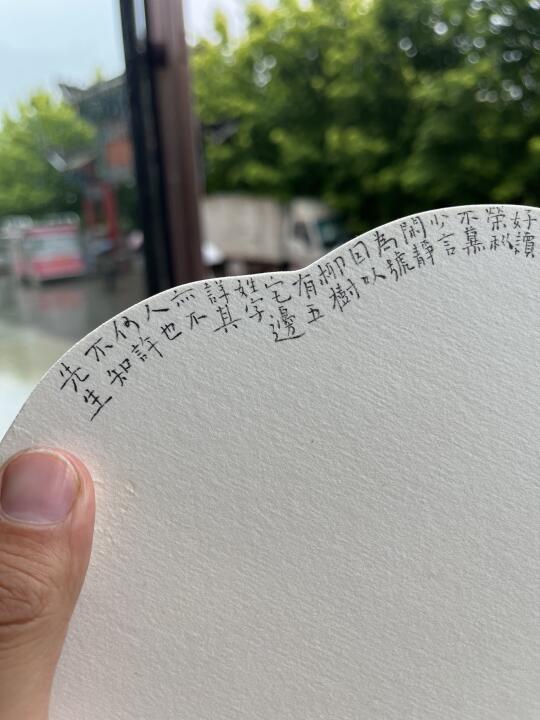 先生
不知
何許
人也
亦不
詳其
姓字
宅邊
有五
柳樹
因以
為號
閑靜
少言
不慕
榮利
好讀